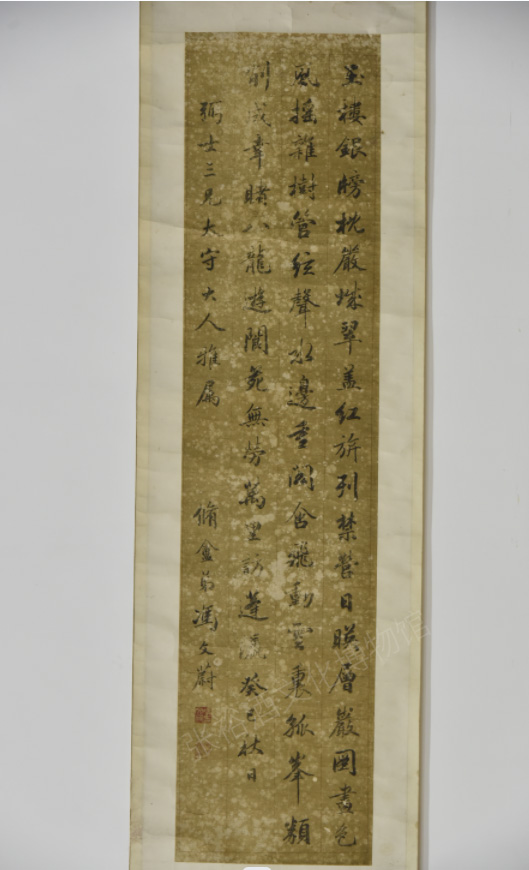 玉樓銀牓枕嚴城翠蓋紅旂列禁營日暎層巖圖畫色
風搖雜樹管絃聲水邊重閣含飛動雲裏孤峯類
削成幸睹八龍遊閬苑無勞萬里訪蓬瀛癸巳秋日
弼士三兄大守大人雅屬
脩盦弟馮文蔚
张裕酒文化博物馆